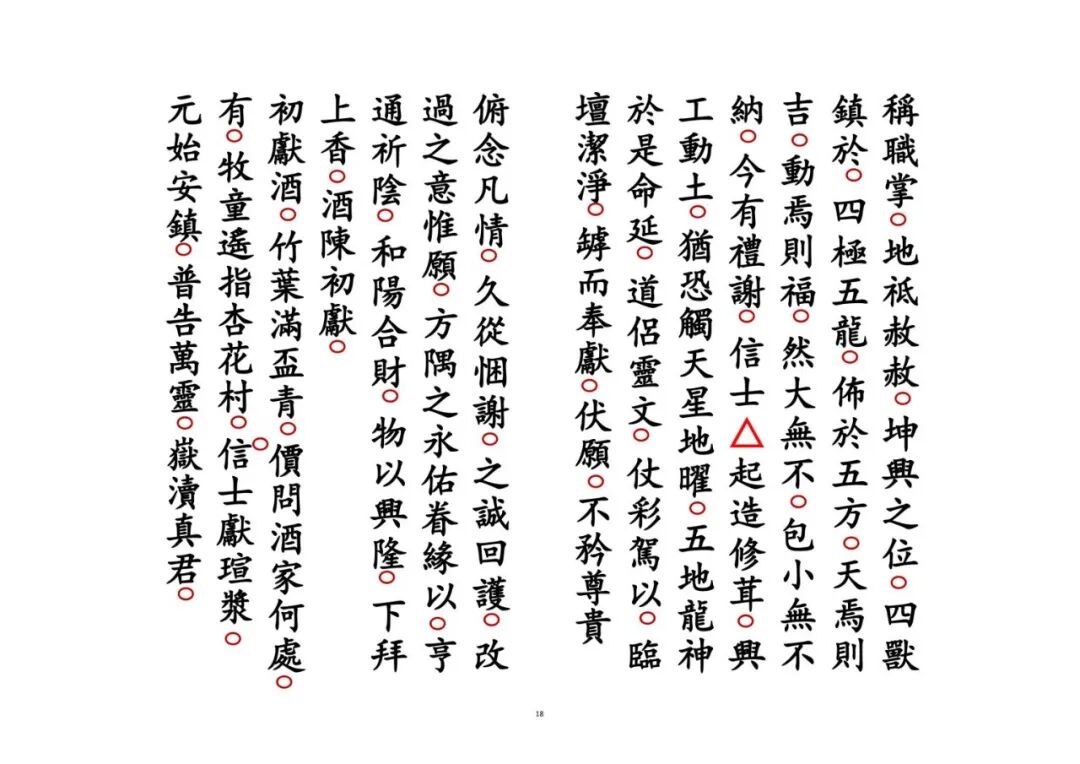 稱職掌。地祇赦赦。坤興之位。四獸
鎮於。四極五龍。佈於五方。天焉則
吉。動焉則福。然大無不。包小無不
納。今有禮謝。信士△起造修茸。興
工動土。猶恐觸天星地曜。五地龍神
於是命延。道侶靈文。仗彩駕以。臨
壇潔淨。罅而奉獻。伏願。不矜尊貴
俯念凡情。久從悃謝。之誠回護。改
過之意惟願。方隅之永佑眷緣以。亨
通祈陰。和陽合財。物以興隆。下拜
上香。酒陳初獻。
初獻酒。竹葉滿盃青。價問酒家何處。
有。牧童遙指杏花村。信士獻瑄漿。
元始安鎮。普告萬靈。嶽瀆真君。
18